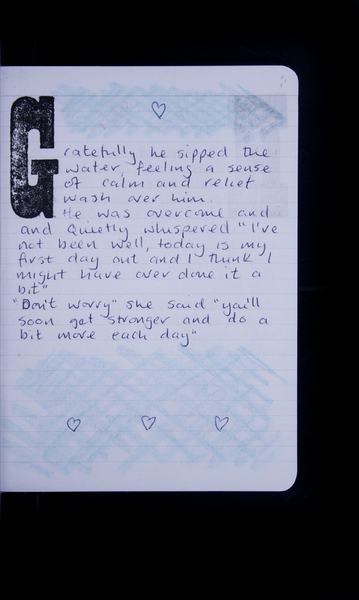 Gratefully he sipped the
water, feeling a sense
of calm and relief
wash over him.
He was overcome and
and Quietly whuspered "I've
not been well, today is my
first day out and I think I
might have over done it a
bit"
"Don't worry" she said "you'll
soon get stronger and do a
bit more each day"